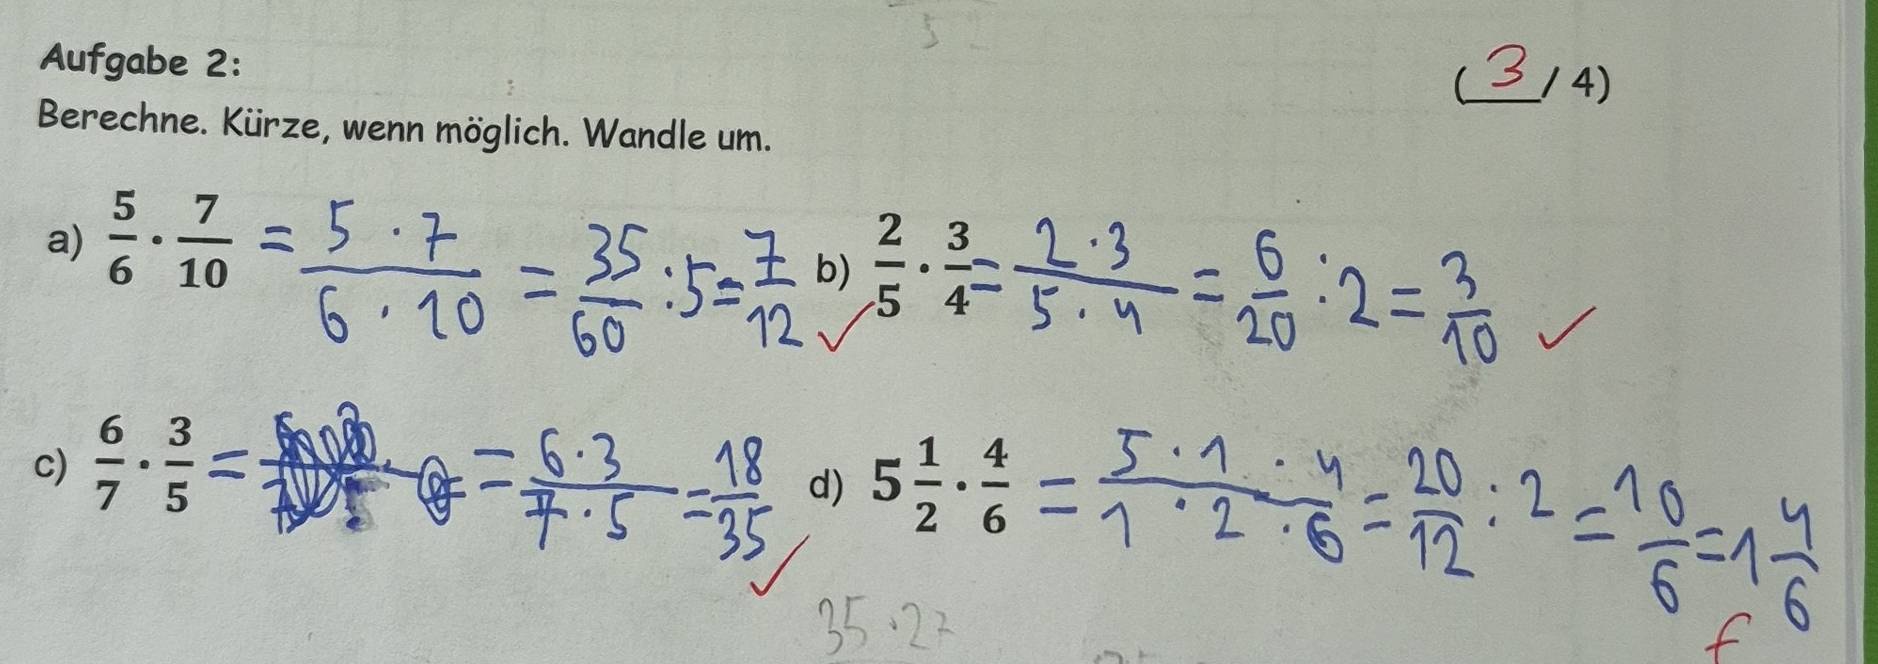 Aufgabe 2:
( 3 / 4)
Berechne. Kürze, wenn möglich. Wandle um.
a) 5/6 · 7/10 = 5 · 7 / 6 · 10 = 35/60 : 5 = 7/12 ✓ b) 2/5 · 3/4 = 2 · 3 / 5 · 4 = 6/20 : 2 = 3/10 ✓
c) 6/7 · 3/5 = = 6 · 3 / 7 · 5 = 18/35 ✓ d) 5 1/2 · 4/6 = 5 · 1 · 4 / 1 · 2 · 6 = 20/12 : 2 = 10/6 = 1 4/6 f
35 · 27